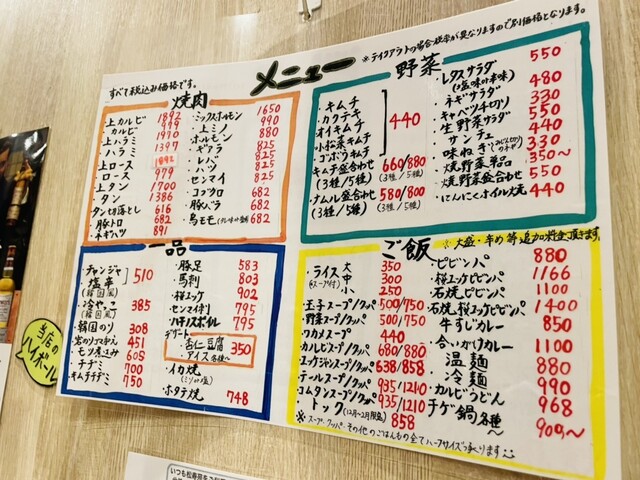 メニュー
※テイクアウトの場合税率が異なりますので別価格となります。
すべて税込み価格です。
焼肉
・上カルビ 1892
・カルビ 999
・上ハラミ 1970
・ハラミ 1397
・上ロース 1892
・ロース 979
・上タン 1700
・タン 1386
・タン切落とし 616
・豚トロ 682
・ネギハツ 891
・ミックスホルモン 1650
・上ミノ 990
・ホルモン 880
・ギアラ 825
・レバー 825
・ハツ 825
・センマイ 825
・コブクロ 682
・豚バラ 682
・鳥モモ 682
野菜
・キムチ
・カクテキ
・オイキムチ
・小松菜キムチ
・ゴボウキムチ
440
・キムチ盛合わせ 660/880
(3種/5種) (3種/5種)
・ナムル盛合わせ 580/800
(3種/5種) (3種/5種)
・レタスサラダ 550
・ネギサラダ 480
・キャベツチギリ 330
・生野菜サラダ 550
・サンチュ 440
・味ねぎ 330
・焼野菜単品 350〜
・焼野菜盛合わせ 550
・にんにくホイル焼 440
一品
・チャンジャ
・塩辛
(韓国風)
510
・冷やっこ
(韓国風)
385
・韓国のり 308
・岩のり 451
・モツ煮込み 605
・チヂミ 700
・キムチチヂミ 750
・豚足 583
・馬刺 803
・桜ユッケ 902
・センマイ刺 795
・ハチノスボイル 795
デザート
・杏仁豆腐 350
・アイス各種〜
・イカ焼
・ホタテ焼 748
ご飯
※大盛・辛め等追加料金頂きます。
・ライス 大 350
(スープ付) 中 300
小 250
・玉子スープ/クッパ 500/750
・野菜スープ/クッパ 500/750
・ワカメスープ 440
・カルビスープ/クッパ 680/880
・ユッケジャンスープ/クッパ 638/858
・テールスープ/クッパ 935/1210
・コムタンスープ/クッパ 935/1210
・トック(12月〜2月限定) 858
・ビビンバ 880
・桜ユッケビビンバ 1166
・石焼ビビンバ 1100
・石焼桜ユッケビビンバ 1400
・牛すじカレー 850
・合いがけカレー 1100
・温麺 880
・冷麺 880
・カルビうどん 990
・チゲ鍋各種〜 968
900〜
※スープ、クッパ、その他のごはんもの全てハーフサイズ承ります
当店の
ハイボール